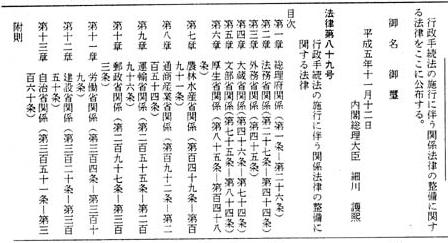 行政手続法の施行に伴う関係法律の整備に関す
る法律をここに公布する。
御名　御璽
平成五年十一月十二日
内閣総理大臣　細川　護熙
法律第八十九号
行政手続法の施行に伴う関係法律の整備に
関する法律
目次
第一章　総理府関係（第一条―第二十六条）
第二章　法務省関係（第二十七条―第四十四条）
第三章　外務省関係（第四十五条）
第四章　大蔵省関係（第四十六条―第七十四条）
第五章　文部省関係（第七十五条―第八十四条）
第六章　厚生省関係（第八十五条―第百四十八
条）
第七章　農林水産省関係（第百四十九条―第百
九十一条）
第八章　通商産業省関係（第百九十二条―第二
百五十四条）
第九章　運輸省関係（第二百五十五条―第二百
九十六条）
第十章　郵政省関係（第二百九十七条―第三百
三条）
第十一章　労働省関係（第三百四条―第三百十
九条）
第十二章　建設省関係（第三百二十条―第三百
五十条）
第十三章　自治省関係（第三百五十一条―第三
百六十条）
附則